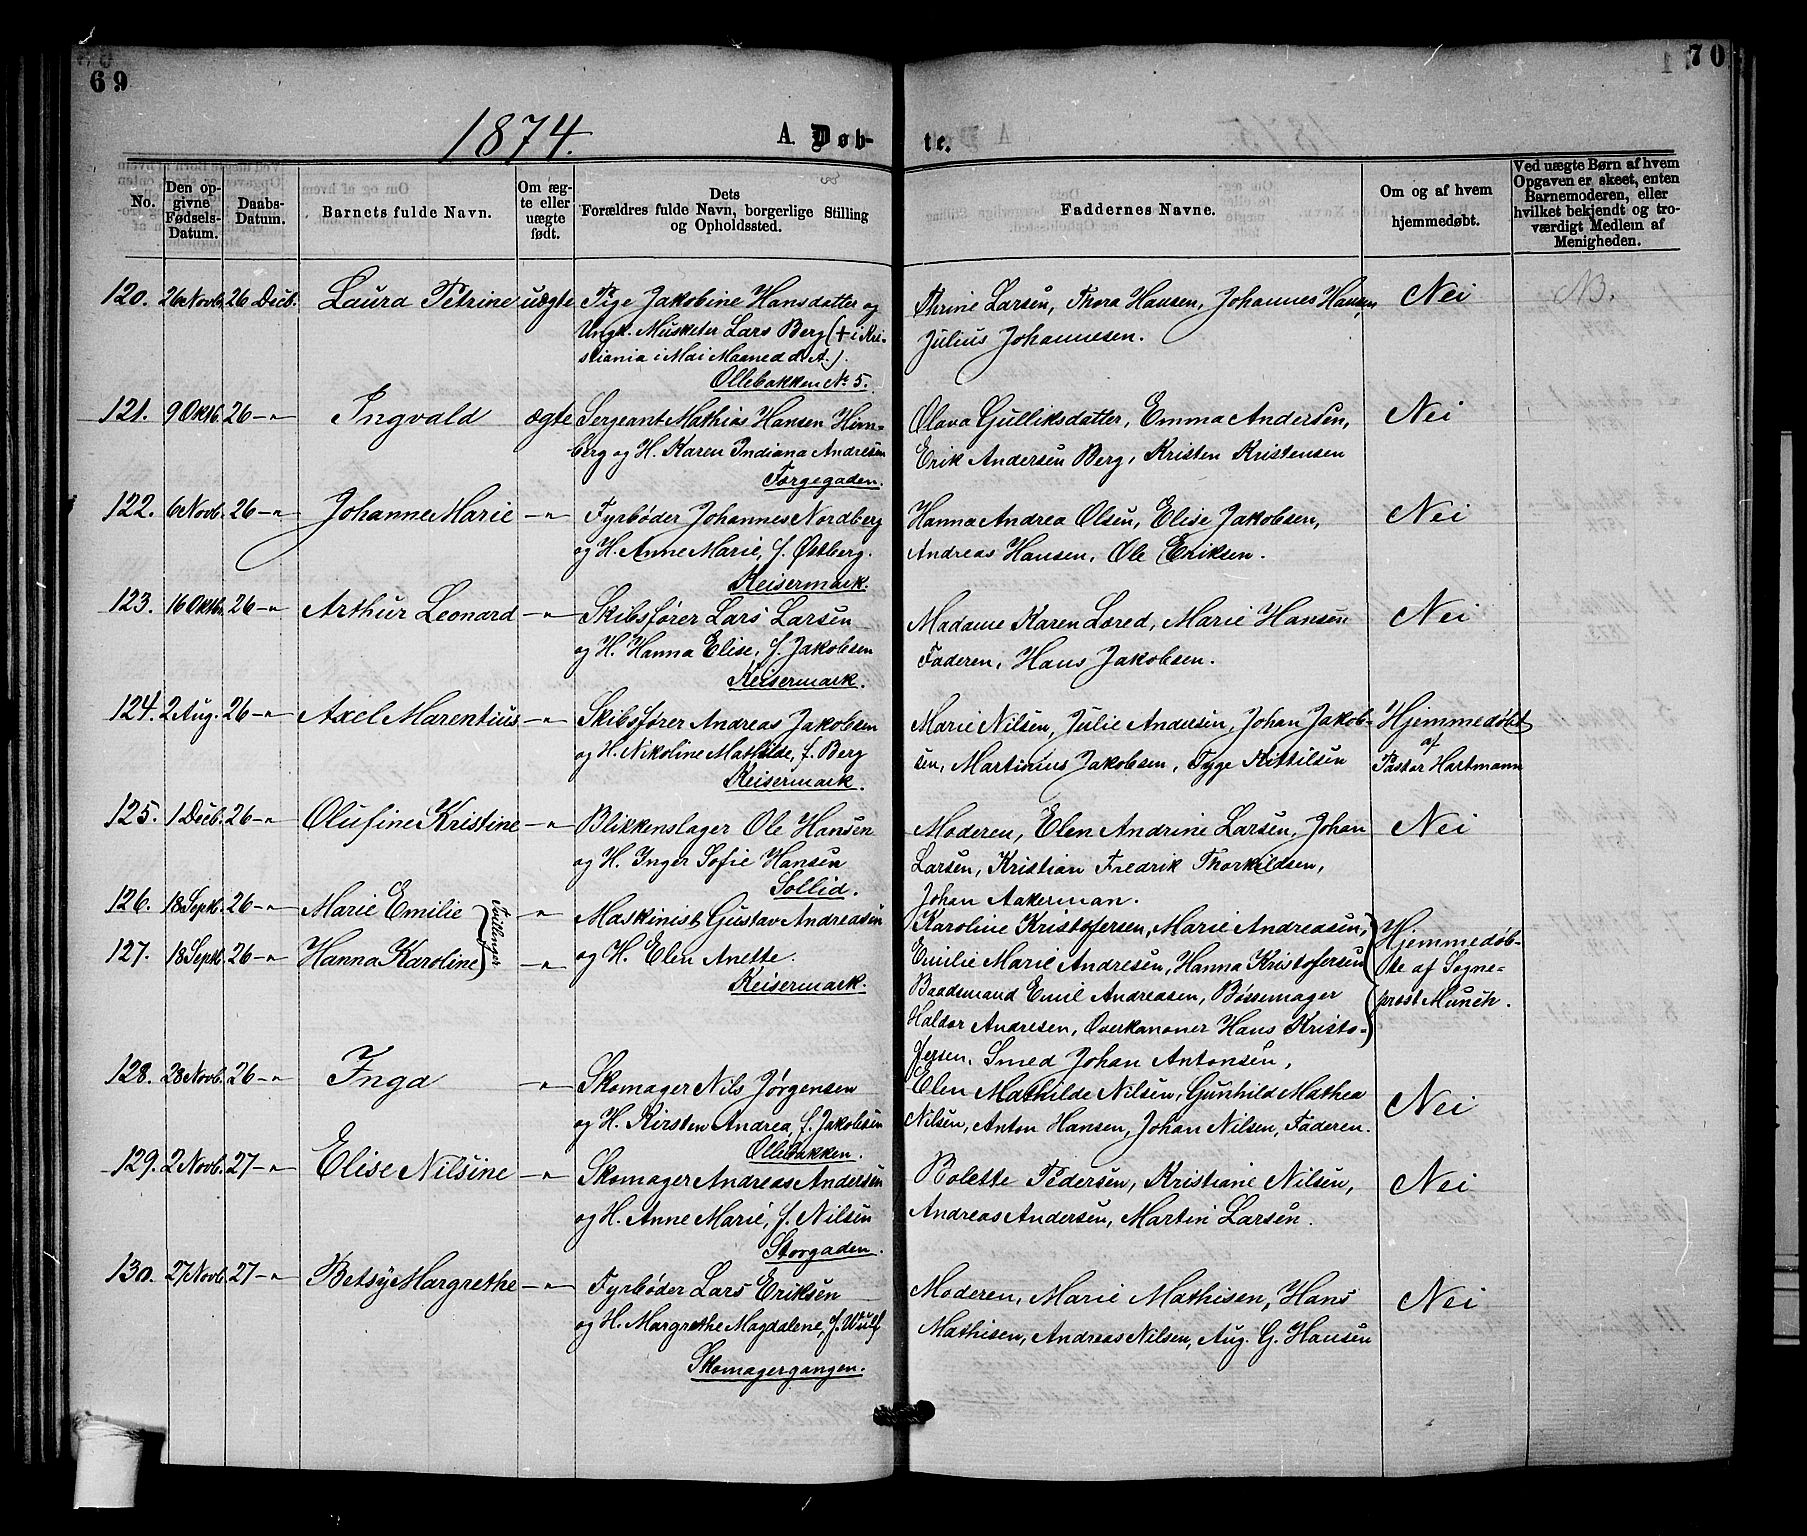 69
70
1874.
A. Døb-
te.
No.
Den op-
givne
Fødsels-
Datum.
Daabs-
Datum.
Barnets fulde Navn.
Om æg-
te eller
uægte
født.
Dets
Forældres fulde Navn, borgerlige Stilling
og Opholdssted.
Faddernes Navne.
Om og af hvem
hjemmedøbt.
Ved uægte Børn af hvem
Opgaven er skeet, enten
Barnemoderen, eller
hvilket bekjendt og tro-
værdigt Medlem af
Menigheden.
120. 26 Novb. 26 Decb. Laura Petrine uægte Pige Jakobine Hansdatter og
Ungk. Musketer Lars Berg (+ i Kri-
stiania i Mai Maaned d. A.).
Ollebakken No 5.
Thrine Larsen, Thora Hansen, Johannes Hansen,
Julius Johannesen.
Nei
NB.
121. 9 Oktb. 26 -"- Ingvald ægte Sergeant Mathias Hansen Hirn-
berg og H. Karen Indiana Andresen
Fargegaden.
Olava Gulliksdatter, Emma Andersen,
Erik Andersen Berg, Kristen Kristensen
Nei
122. 6 Novb. 26 -"- Johanne Marie -"- Fyrbøder Johannes Nordberg
og H. Anne Marie, f. Østberg.
Keisermark.
Hanna Andrea Olsen, Elise Jakobsen,
Andreas Hansen, Ole Eriksen.
Nei
123. 16 Oktb. 26 -"- Arthur Leonard -"- Skibsfører Lars Larsen
og H. Hanna Elise, f. Jakobsen
Keisermark.
Madame Karen Læred, Marie Hansen
Faderen, Hans Jakobsen.
Nei
124. 2 Aug. 26 -"- Axel Marentius -"- Skibsfører Andreas Jakobsen
og H. Nikoline Mathilde, f. Berg
Keisermark.
Marie Nilsen, Julie Andersen, Johan Jakob-
sen, Martinius Jakobsen, Tyge Kittilsen
Hjemmedøbt
af
Pastor Hartmann
125. 1 Decb. 26 -"- Olufine Kristine -"- Blikkenslager Ole Hansen
og H. Inger Sofie Hansen
Sollid.
Moderen, Elen Andrine Larsen, Johan
Larsen, Kristian Fredrik Thorkildsen,
Johan Aakerman.
Nei
126. 18 Septb. 26 -"- Marie Emilie -"- Maskinist Gustav Andreasen
127. 18 Septb. 26 -"- Hanna Karoline -"- og H. Elen Anette.
Tvillinger
Keisermark.
Karoline Kristofersen, Marie Andreasen,
Emilie Marie Andresen, Hanna Kristofersen
Baadsmand Emil Andreasen, Bøssemager
Haldor Andresen, Overkanoner Hans Kristo-
fersen, Smed Johan Antonsen,
Hjemmedøb-
te af Sogne-
præst Munch.
128. 28 Novb. 26 -"- Inga -"- Skomager Nils Jørgensen
og H. Kirsten Andrea, f. Jakobsen
Ollebakken.
Elen Mathilde Nilsen, Gunhild Mathea
Nilsen, Anton Hansen, Johan Nilsen, Faderen.
Nei
129. 2 Novb. 27 -"- Elise Nilsine -"- Skomager Andreas Andersen
og H. Anne Marie, f. Nilsen
Storgaden.
Bolette Pedersen, Kristiane Nilsen,
Andreas Andersen, Martin Larsen.
Nei
130. 27 Novb. 27 -"- Betsy Margrethe -"- Fyrbøder Lars Eriksen
og H. Margrethe Magdalene, f. Wulf
Skomagergangen.
Moderen, Marie Mathisen, Hans
Mathisen, Andreas Nilsen, Aug. G. Hansen
Nei